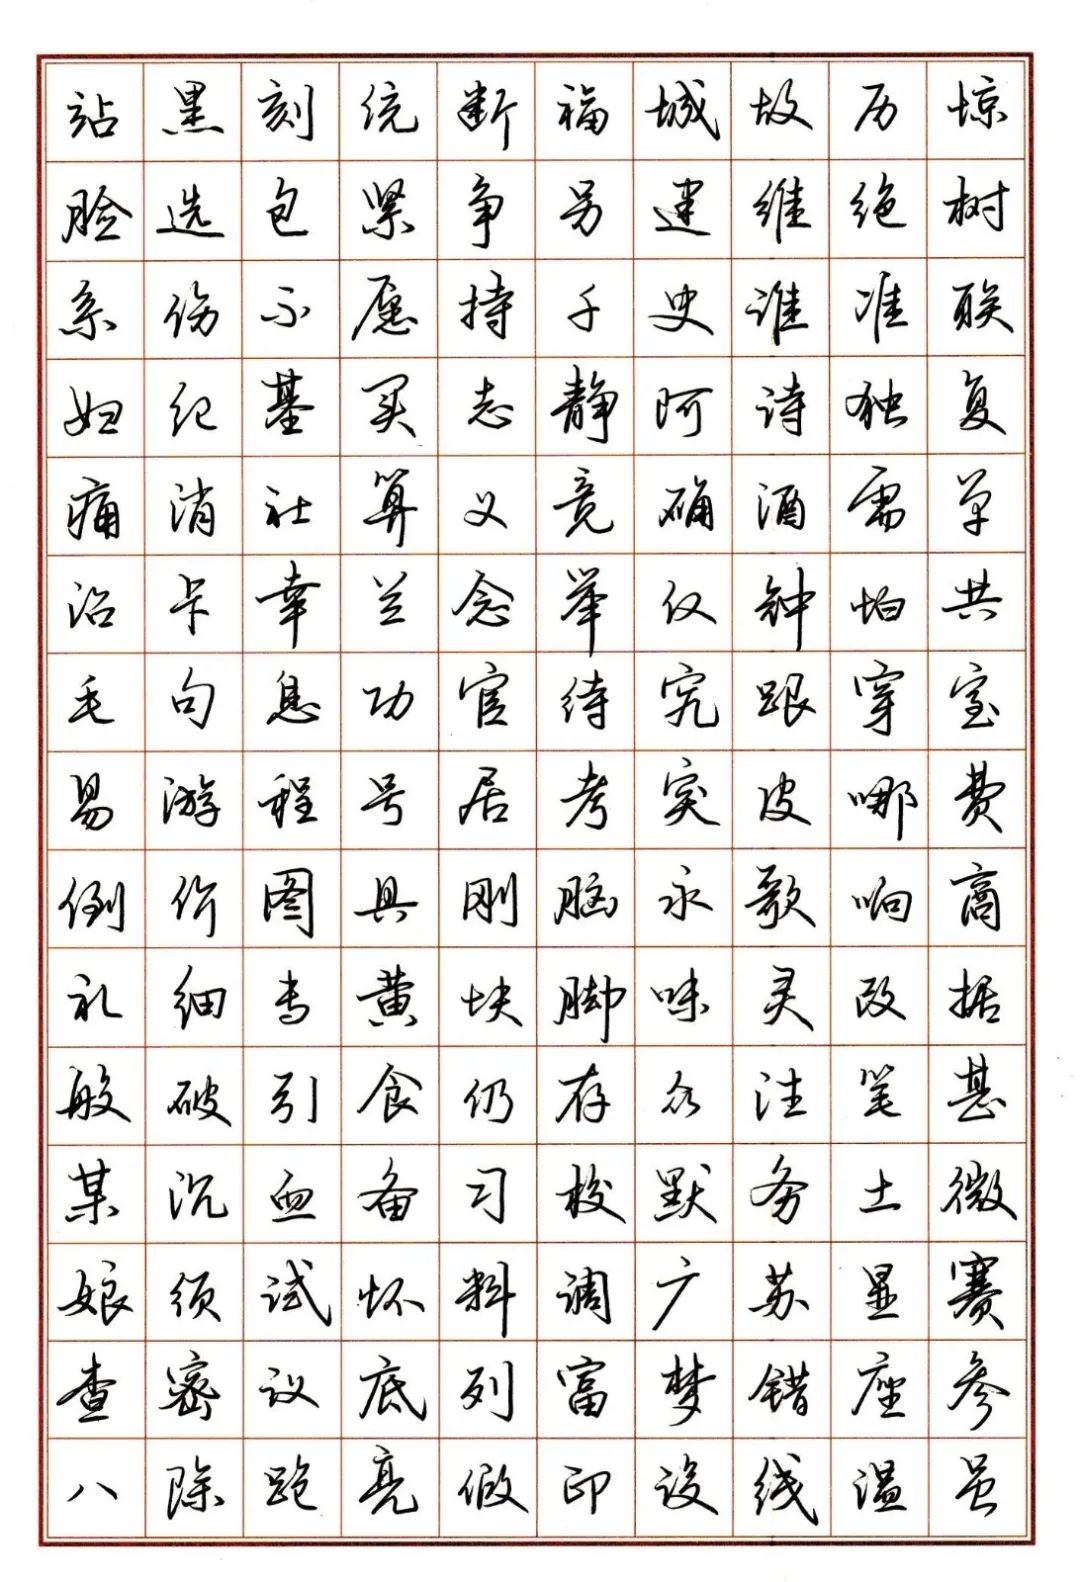 站黑刻统断福城故历惊
脸选包紧争另建维绝树
系伤示愿持千史谁准联
妇纪基买志静阿诗独复
痛消社算义竟确酒需单
治卡幸兰念举仅钟怕共
毛句息功官待究跟穿室
易游程号居考突皮哪费
倒价图具刚脑永歌响商
礼细专黄块脚味灵改据
般破引食仍存众注笔甚
某沉血备习校默务土微
娘须试怀料调广苏显赛
查密议底列富梦错座参
八除跑亮假印设线温虽